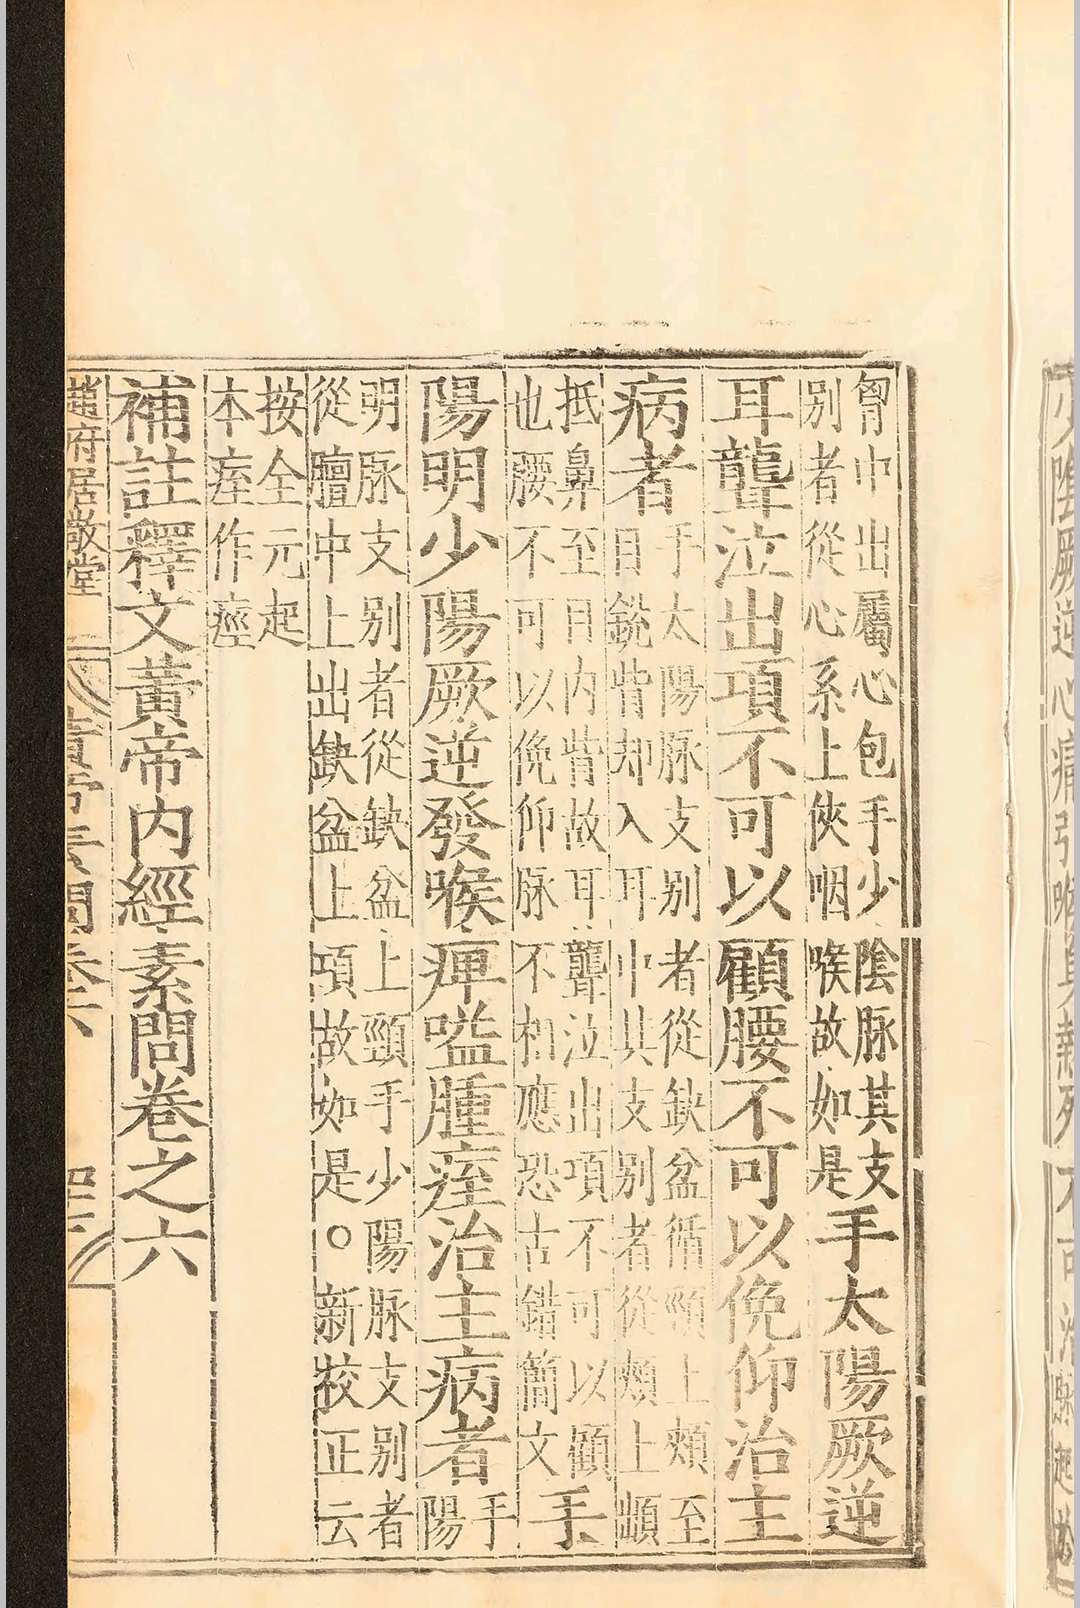 胷中出屬心包手少陰脉其支
別者從心系上俠咽喉故如是手太陽厥逆
耳聾泣出項不可以顧腰不可以俛仰治主
病者手太陽脉支別者從缺盆循頸上頰至
目銳眥却入耳中其支別者從頰上䪼
抵鼻至目內眥故耳聾泣出項不可以顧
也腰不可以俛仰脉不相應恐古錯簡文手
陽明少陽厥逆發喉痺嗌腫痓治主病者手
陽
明脉支別者從缺盆上頸手少陽脉支別者
從膻中上出缺盆上項故如是○新校正云
按全元起
本痓作痙
補註釋文黃帝內經素問卷之六
趙府居敬堂
素問卷六